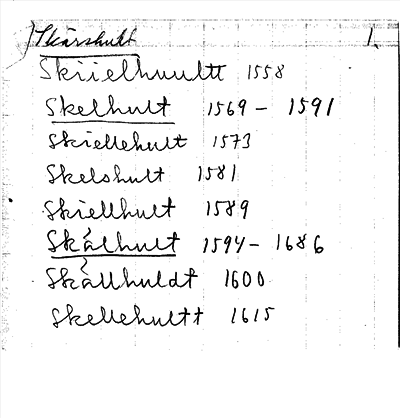 Skårshult 1.
Skrielhuultt 1558
Skelhult 1569 - 1591
Skiellehult 1573
Skelshult 1581
Skiellhult 1589
Skålhult 1594 - 1686
Skållhuldt 1600
Skellehultt 1615